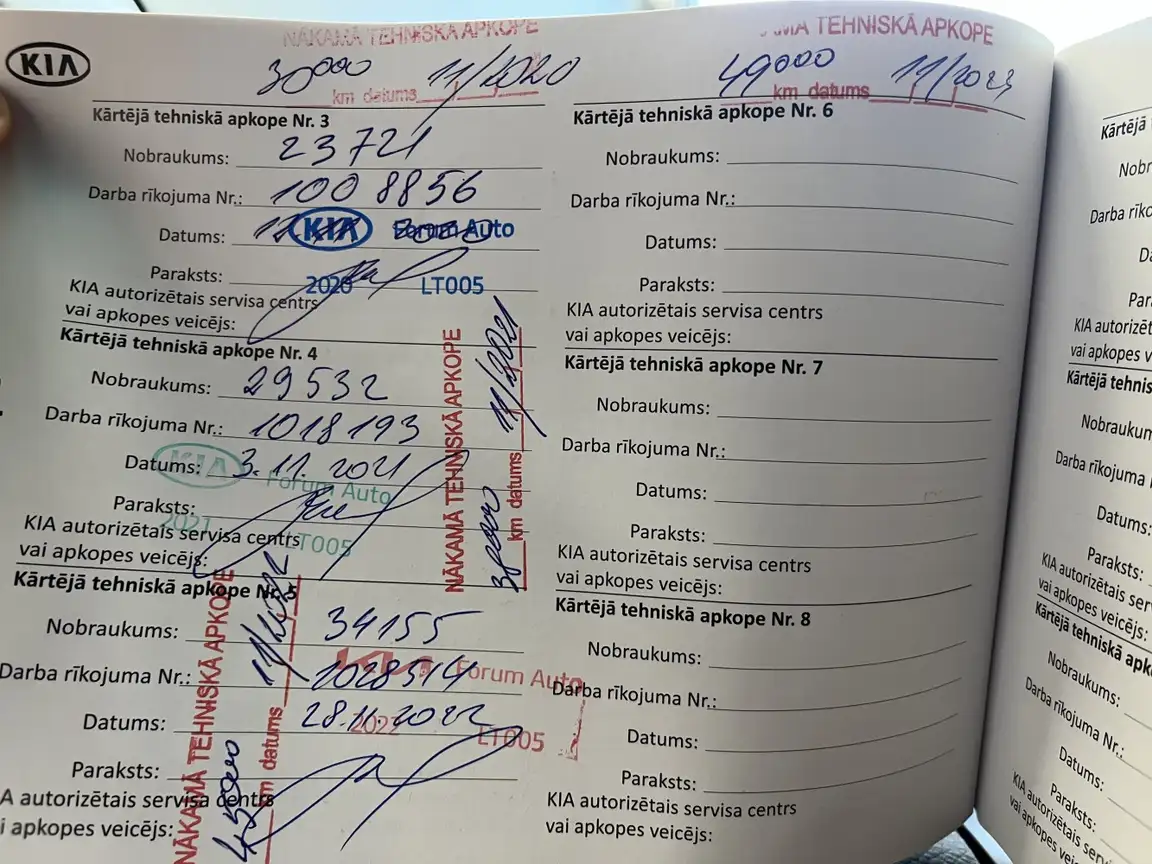 KIA
NĀKAMĀ TEHNISKĀ APKOPE
30000 km datums 11/2020
Kārtējā tehniskā apkope Nr. 3
Nobraukums: 23721
Darba rīkojuma Nr.: 1008856
Datums:
KIA Forum Auto
Paraksts:
2020 LT005
KIA autorizētais servisa centrs
vai apkopes veicējs:
Kārtējā tehniskā apkope Nr. 4
Nobraukums: 29532
Darba rīkojuma Nr.: 1018193
Datums: 3.11.2021
KIA Forum Auto
Paraksts:
2021 LT005
KIA autorizētais servisa centrs
vai apkopes veicējs:
NĀKAMĀ TEHNISKĀ APKOPE
km datums 11/2021
Kārtējā tehniskā apkope Nr. 5
Nobraukums: 34155
Darba rīkojuma Nr.: 1028514
Forum Auto
Datums: 28.11.2022
2022 LT005
Paraksts:
A autorizētais servisa centrs
i apkopes veicējs:
NĀKAMĀ TEHNISKĀ APKOPE
45000 km datums 11/2022
MĀ TEHNISKĀ APKOPE
49000 km datums 11/2023
Kārtējā tehniskā apkope Nr. 6
Nobraukums:
Darba rīkojuma Nr.:
Datums:
Paraksts:
KIA autorizētais servisa centrs
vai apkopes veicējs:
Kārtējā tehniskā apkope Nr. 7
Nobraukums:
Darba rīkojuma Nr.:
Datums:
Paraksts:
KIA autorizētais servisa centrs
vai apkopes veicējs:
Kārtējā tehniskā apkope Nr. 8
Nobraukums:
Darba rīkojuma Nr.:
Datums:
Paraksts:
KIA autorizētais servisa centrs
vai apkopes veicējs:
Kārtējā
Nobr
Darba rīko
Da
Par
KIA autorizēt
vai apkopes v
Kārtējā tehnis
Nobraukum
Darba rīkojuma
Datums:
Paraksts:
KIA autorizētais ser
vai apkopes veicējs:
Kārtējā tehniskā apk
Nobraukums:
Darba rīkojuma Nr.:
Datums:
Paraksts:
KIA autorizētais servis
vai apkopes veicējs: